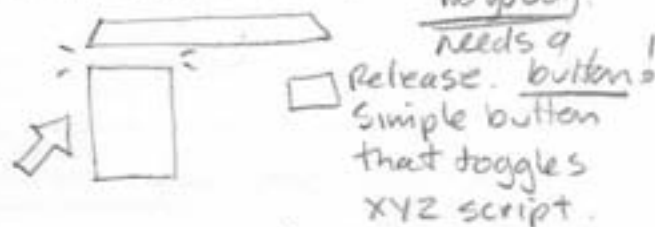 needs a
Release. button!
Simple button
that toggles
XYZ script.